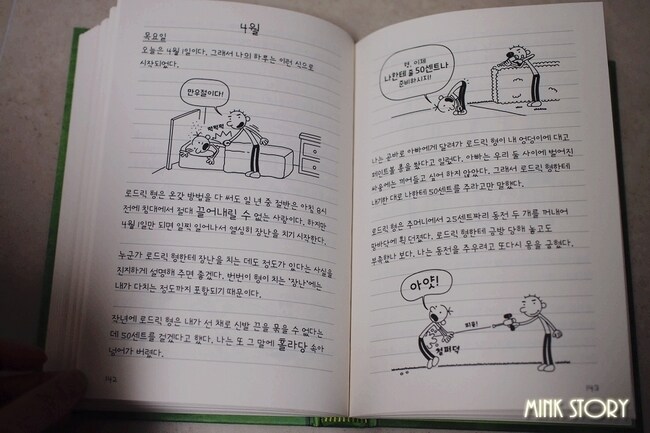 4월
목요일
오늘은 4월 1일이다. 그래서 나의 하루는 이런 식으로
시작되었다.
만우절이다!
퍽퍽퍽
로드릭 형은 온갖 방법을 다 써도 일 년 중 절반은 아침 8시
전에 침대에서 절대 끌어내릴 수 없는 사람이다. 하지만
4월 1일만 되면 일찍 일어나서 열심히 장난을 치기 시작한다.
누군가 로드릭 형한테 장난을 치는 데도 정도가 있다는 사실을
진지하게 설명해 주면 좋겠다. 번번이 형이 치는 '장난'에는
내가 다치는 정도까지 포함되기 때문이다.
작년에 로드릭 형은 내가 선 채로 신발 끈을 묶을 수 없다는
데 50센트를 걸겠다고 했다. 나는 또 그 말에 홀라당 속아
넘어가 버렸다.
142
헌, 이제
나한테 줄 50센트나
준비하시지!
나는 곧바로 아빠에게 달려가 로드릭 형이 내 엉덩이에 대고
페인트볼 총을 쐈다고 일렀다. 아빠는 우리 둘 사이에 벌어진
싸움에는 끼어들고 싶어 하지 않았다. 그래서 로드릭 형한테
내기한 대로 나한테 50센트를 주라고만 말했다.
로드릭 형은 주머니에서 25센트짜리 동전 두 개를 꺼내어
땅바닥에 휙 던졌다. 로드릭 형한테 금방 당해 놓고도
부족했나 보다. 나는 동전을 주우려고 또다시 몸을 굽혔다.
아얏!
피융!
철퍼덕
143
MINK STORY